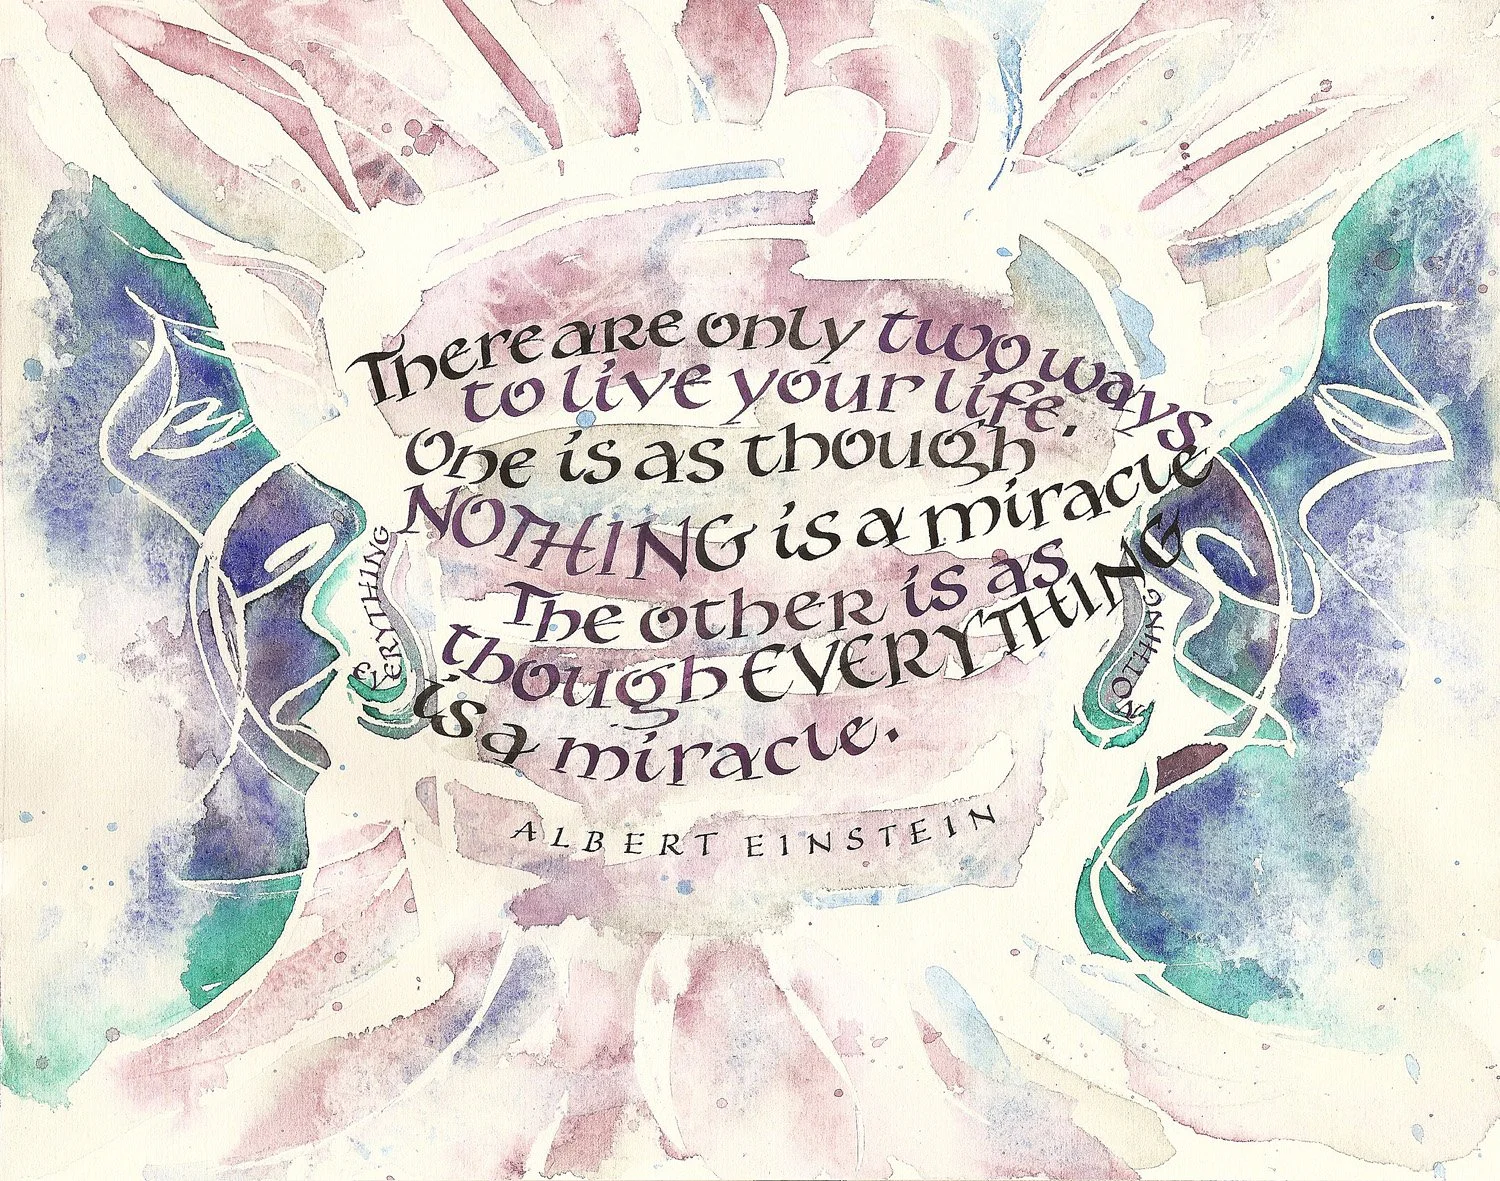 There are only two ways
to live your life.
One is as though
NOTHING is a miracle
The other is as
though EVERYTHING
is a miracle.
ALBERT EINSTEIN
EVERYTHING
NOTHING